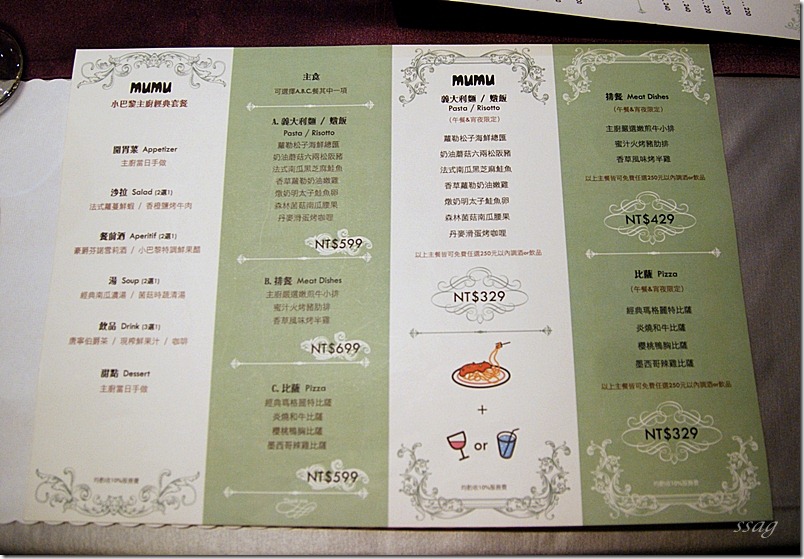 MUMU
小巴黎主廚經典套餐
開胃菜 Appetizer
主廚當日手做
沙拉 Salad (2選1)
法式蘿蔓鮮蝦 / 香橙鹽烤牛肉
餐前酒 Aperitif (2選1)
豪爵芬諾雪莉酒 / 小巴黎特調鮮果醋
湯 Soup (2選1)
經典南瓜濃湯 / 菌菇時蔬清湯
飲品 Drink (3選1)
唐寧伯爵茶 / 現榨鮮果汁 / 咖啡
甜點 Dessert
主廚當日手做
均酌收10%服務費
主食
可選擇A.B.C.餐其中一項
A. 義大利麵 / 燉飯
Pasta / Risotto
蘿勒松子海鮮總匯
奶油蘑菇六兩松阪豬
法式南瓜黑芝麻鮭魚
香草蘿勒奶油嫩雞
燉奶明太子鮭魚卵
森林菌菇南瓜腰果
丹麥滑蛋烤咖哩
NT$599
B. 排餐 Meat Dishes
主廚嚴選嫩煎牛小排
蜜汁火烤豬肋排
香草風味烤半雞
NT$699
C. 比薩 Pizza
經典瑪格麗特比薩
炎燒和牛比薩
櫻桃鴨胸比薩
墨西哥辣雞比薩
NT$599
MUMU
義大利麵 / 燉飯
Pasta / Risotto
(午餐&宵夜限定)
蘿勒松子海鮮總匯
奶油蘑菇六兩松阪豬
法式南瓜黑芝麻鮭魚
香草蘿勒奶油嫩雞
燉奶明太子鮭魚卵
森林菌菇南瓜腰果
丹麥滑蛋烤咖哩
以上主餐皆可免費任選250元以內調酒or飲品
NT$329
+
or
均酌收10%服務費
排餐 Meat Dishes
(午餐&宵夜限定)
主廚嚴選嫩煎牛小排
蜜汁火烤豬肋排
香草風味烤半雞
以上主餐皆可免費任選250元以內調酒or飲品
NT$429
比薩 Pizza
(午餐&宵夜限定)
經典瑪格麗特比薩
炎燒和牛比薩
櫻桃鴨胸比薩
墨西哥辣雞比薩
以上主餐皆可免費任選250元以內調酒or飲品
NT$329
均酌收10%服務費
ssag